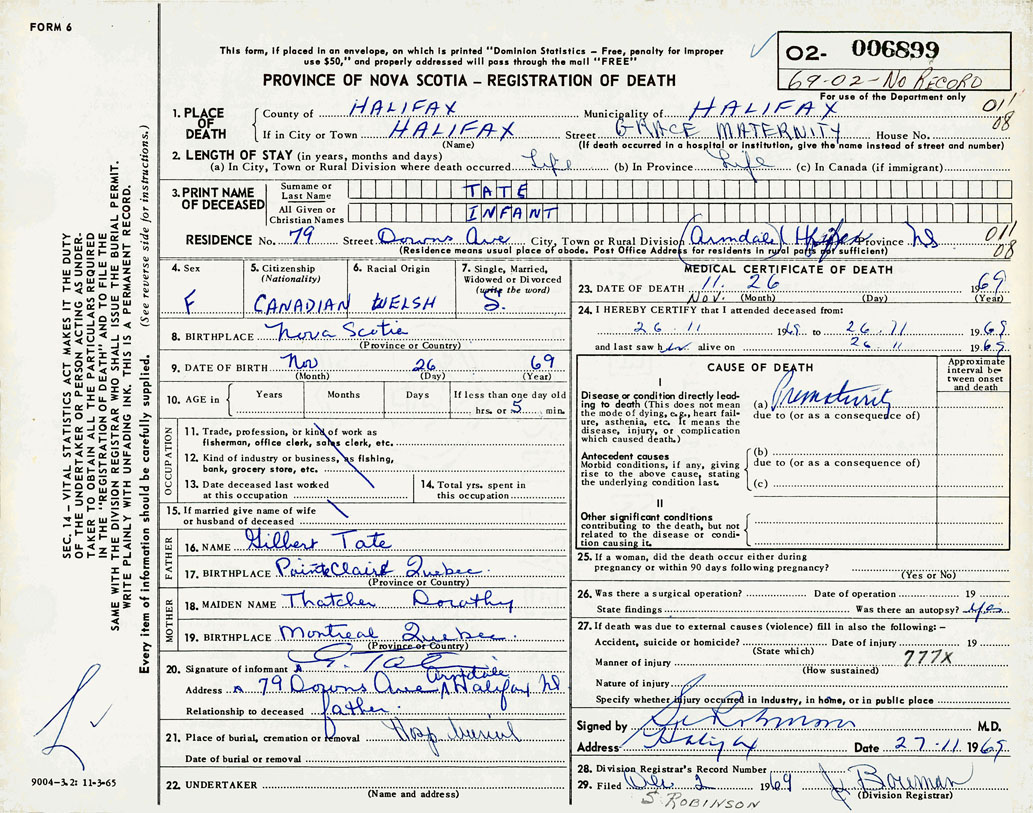 FORM 6
This form, if placed in an envelope, on which is printed "Dominion Statistics – Free, penalty for improper
use $50," and properly addressed will pass through the mail "FREE"
O2- 006899
69-02-NO RECORD
For use of the Department only
PROVINCE OF NOVA SCOTIA – REGISTRATION OF DEATH
011
08
1. PLACE OF DEATH
County of HALIFAX Municipality of HALIFAX
If in City or Town HALIFAX Street GRACE MATERNITY House No.
(Name) (If death occurred in a hospital or institution, give the name instead of street and number)
2. LENGTH OF STAY (in years, months and days)
(a) In City, Town or Rural Division where death occurred Life (b) In Province Life (c) In Canada (if immigrant)
3. PRINT NAME OF DECEASED
Surname or Last Name TATE
All Given or Christian Names INFANT
RESIDENCE No. 79 Street Downs Ave City, Town or Rural Division (Armdale) Hfx Province NS
011
08
(Residence means usual place of abode. Post Office Address for residents in rural parts not sufficient)
4. Sex
F
5. Citizenship
(Nationality)
CANADIAN
6. Racial Origin
WELSH
7. Single, Married,
Widowed or Divorced
(write the word)
S.
8. BIRTHPLACE Nova Scotia
(Province or Country)
9. DATE OF BIRTH Nov 26 69
(Month) (Day) (Year)
10. AGE in Years Months Days If less than one day old
hrs. or 5 min.
OCCUPATION
11. Trade, profession, or kind of work as
fisherman, office clerk, sales clerk, etc.
12. Kind of industry or business, as fishing,
bank, grocery store, etc.
13. Date deceased last worked
at this occupation
14. Total yrs. spent in
this occupation
15. If married give name of wife
or husband of deceased
FATHER
16. NAME Gilbert Tate
17. BIRTHPLACE Pointe Claire Quebec
(Province or Country)
MOTHER
18. MAIDEN NAME Thatcher Dorothy
19. BIRTHPLACE Montreal Quebec
(Province or Country)
20. Signature of informant G. Tate
Armdale
Address 79 Downs Ave Halifax NS
Relationship to deceased father
21. Place of burial, cremation or removal Hosp burial
Date of burial or removal
22. UNDERTAKER
(Name and address)
MEDICAL CERTIFICATE OF DEATH
23. DATE OF DEATH 11. 26 1969
Nov. (Month) (Day) (Year)
24. I HEREBY CERTIFY that I attended deceased from:
26.11 1969 to 26.11 1969
and last saw her alive on 26.11 1969
CAUSE OF DEATH
Approximate
interval be-
tween onset
and death
I
Disease or condition directly lead-
ing to death (This does not mean
the mode of dying, e.g., heart fail-
ure, asthenia, etc. It means the
disease, injury, or complication
which caused death.)
(a) Prematurity
due to (or as a consequence of)
Antecedent causes
Morbid conditions, if any, giving
rise to the above cause, stating
the underlying condition last.
(b)
due to (or as a consequence of)
(c)
II
Other significant conditions
contributing to the death, but not
related to the disease or condi-
tion causing it.
25. If a woman, did the death occur either during
pregnancy or within 90 days following pregnancy?
(Yes or No)
26. Was there a surgical operation? Date of operation 19
State findings Was there an autopsy? Yes
27. If death was due to external causes (violence) fill in also the following: –
Accident, suicide or homicide? Date of injury 19
(State which)
777X
Manner of injury
(How sustained)
Nature of injury
Specify whether injury occurred in industry, in home, or in public place
Signed by Robinson M.D.
Address Halifax Date 27.11 1969
28. Division Registrar's Record Number
29. Filed Dec 2 1969 Bowman
(Division Registrar)
S ROBINSON
SEC. 14 – VITAL STATISTICS ACT MAKES IT THE DUTY
OF THE UNDERTAKER OR PERSON ACTING AS UNDER-
TAKER TO OBTAIN ALL THE PARTICULARS REQUIRED
IN THE "REGISTRATION OF DEATH" AND TO FILE THE
SAME WITH THE DIVISION REGISTRAR WHO SHALL ISSUE THE BURIAL PERMIT.
WRITE PLAINLY WITH UNFADING INK. THIS IS A PERMANENT RECORD.
Every item of information should be carefully supplied. (See reverse side for instructions.)
9004-3.2: 11-3-65